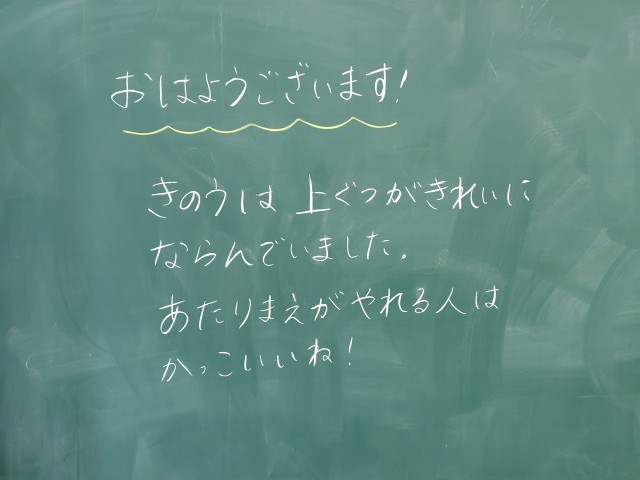 おはようございます!
きのうは 上ぐつがきれいに
ならんでいました。
あたりまえがやれる人は
かっこいいね!